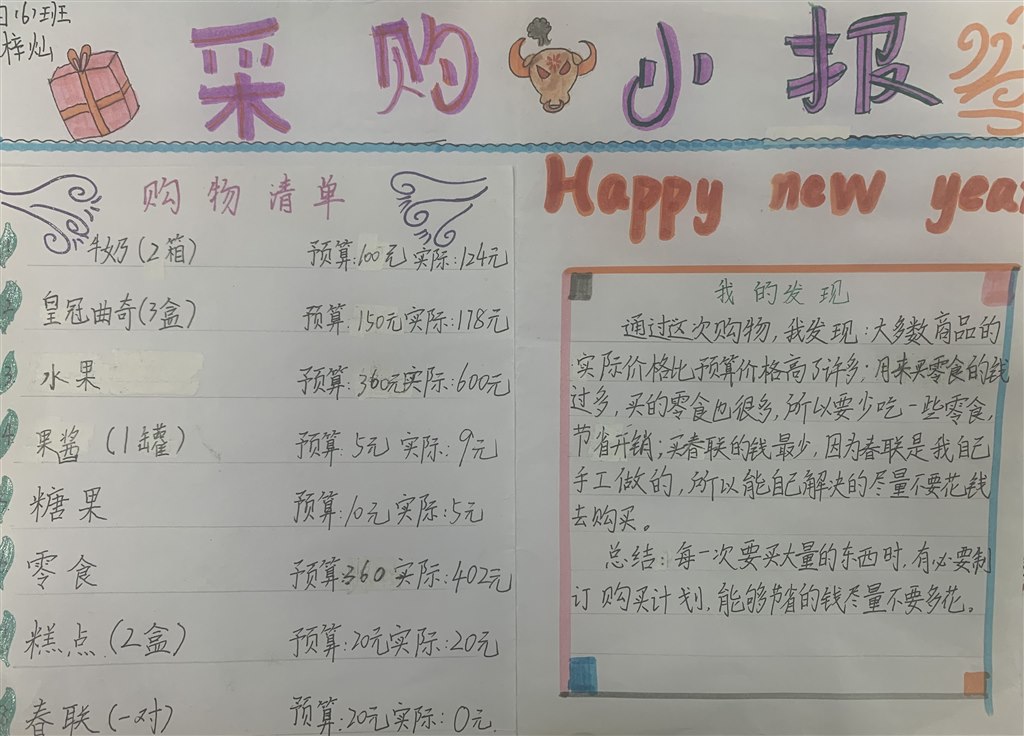 (6)班
梓灿
采购小报
购物清单
牛奶(2箱) 预算:100元 实际:124元
皇冠曲奇(3盒) 预算:150元 实际:178元
水果 预算:360元 实际:600元
果酱(1罐) 预算:5元 实际:9元
糖果 预算:10元 实际:5元
零食 预算:360 实际:402元
糕点(2盒) 预算:20元 实际:20元
春联(一对) 预算:20元 实际:0元
Happy new year
我的发现
通过这次购物,我发现:大多数商品的
实际价格比预算价格高了许多;用来买零食的钱
过多,买的零食也很多,所以要少吃一些零食,
节省开销;买春联的钱最少,因为春联是我自己
手工做的,所以能自己解决的尽量不要花钱
去购买。
总结:每一次要买大量的东西时,有必要制
订购买计划,能够节省的钱尽量不要多花。